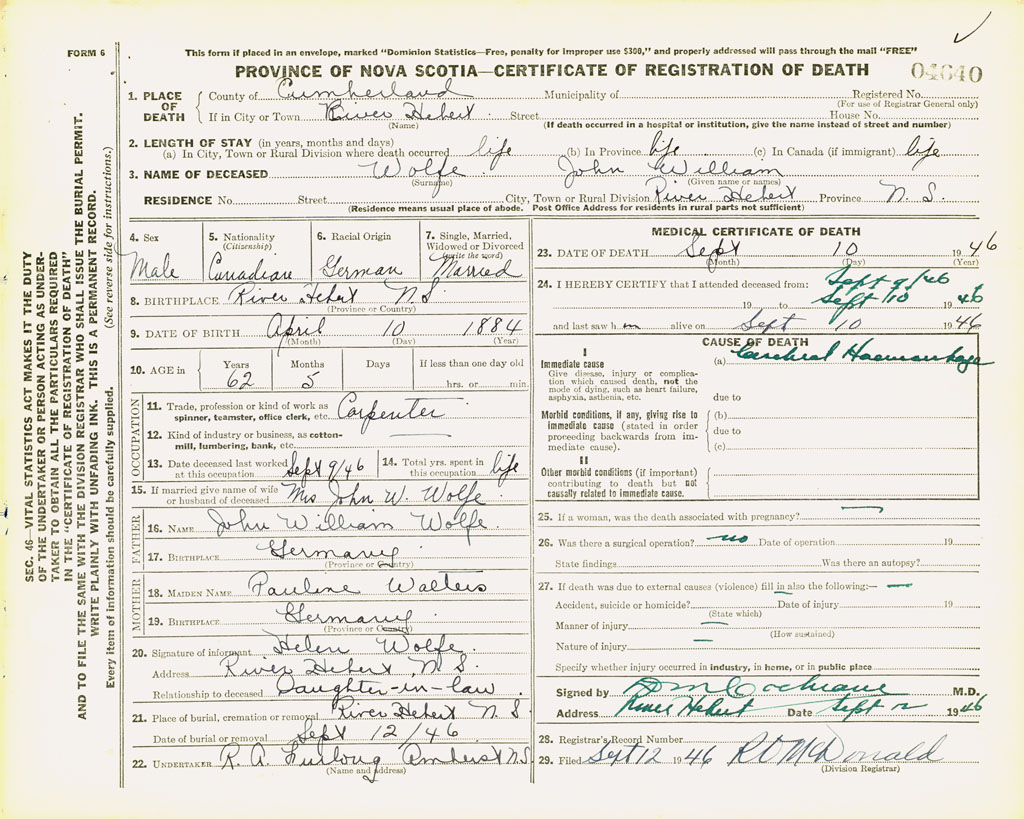 FORM 6
This form if placed in an envelope, marked "Dominion Statistics—Free, penalty for improper use $300," and properly addressed will pass through the mail "FREE"
PROVINCE OF NOVA SCOTIA—CERTIFICATE OF REGISTRATION OF DEATH 04640
1. PLACE OF DEATH County of Cumberland Municipality of Registered No.
(For use of Registrar General only)
If in City or Town River Hebert Street House No.
(Name) (If death occurred in a hospital or institution, give the name instead of street and number)
2. LENGTH OF STAY (in years, months and days)
(a) In City, Town or Rural Division where death occurred life (b) In Province life (c) In Canada (if immigrant) life
3. NAME OF DECEASED Wolfe John William
(Surname) (Given name or names)
RESIDENCE No. Street City, Town or Rural Division River Hebert Province N. S.
(Residence means usual place of abode. Post Office Address for residents in rural parts not sufficient)
4. Sex Male
5. Nationality (Citizenship) Canadian
6. Racial Origin German
7. Single, Married, Widowed or Divorced (write the word) Married
8. BIRTHPLACE River Hebert N.S.
(Province or Country)
9. DATE OF BIRTH April 10 1884
(Month) (Day) (Year)
10. AGE in Years 62 Months 5 Days If less than one day old hrs. or min.
OCCUPATION
11. Trade, profession or kind of work as spinner, teamster, office clerk, etc. Carpenter
12. Kind of industry or business, as cotton-mill, lumbering, bank, etc. —
13. Date deceased last worked at this occupation Sept 9/46
14. Total yrs. spent in this occupation life
15. If married give name of wife or husband of deceased Mrs John W. Wolfe
FATHER
16. NAME John William Wolfe
17. BIRTHPLACE Germany
(Province or Country)
MOTHER
18. MAIDEN NAME Pauline Walters
19. BIRTHPLACE Germany
(Province or Country)
20. Signature of informant Helen Wolfe
Address River Hebert N.S.
Relationship to deceased Daughter-in-law
21. Place of burial, cremation or removal River Hebert N.S.
Date of burial or removal Sept 12/46
22. UNDERTAKER R. A. Furlong Amherst N.S.
(Name and address)
MEDICAL CERTIFICATE OF DEATH
23. DATE OF DEATH Sept 10 1946
(Month) (Day) (Year)
24. I HEREBY CERTIFY that I attended deceased from: Sept 9/46
19 to Sept 10 1946
and last saw h m alive on Sept 10 1946
CAUSE OF DEATH
I
Immediate cause (a) Cerebral Haemorrhage
Give disease, injury or complication which caused death, not the mode of dying, such as heart failure, asphyxia, asthenia, etc.
due to
Morbid conditions, if any, giving rise to immediate cause (stated in order proceeding backwards from immediate cause).
(b)
due to
(c)
II
Other morbid conditions (if important) contributing to death but not causally related to immediate cause.
25. If a woman, was the death associated with pregnancy? —
26. Was there a surgical operation? no Date of operation 19
State findings Was there an autopsy?
27. If death was due to external causes (violence) fill in also the following:— —
Accident, suicide or homicide? Date of injury 19
(State which)
Manner of injury —
(How sustained)
Nature of injury —
Specify whether injury occurred in industry, in home, or in public place
Signed by Cochrane M.D.
Address River Hebert Date Sept 12 1946
28. Registrar's Record Number
29. Filed Sept 12 1946 McDonald
(Division Registrar)
SEC. 46—VITAL STATISTICS ACT MAKES IT THE DUTY
OF THE UNDERTAKER OR PERSON ACTING AS UNDER-
TAKER TO OBTAIN ALL THE PARTICULARS REQUIRED
IN THE "CERTIFICATE OF REGISTRATION OF DEATH"
AND TO FILE THE SAME WITH THE DIVISION REGISTRAR WHO SHALL ISSUE THE BURIAL PERMIT.
WRITE PLAINLY WITH UNFADING INK. THIS IS A PERMANENT RECORD.
Every item of information should be carefully supplied. (See reverse side for instructions.)